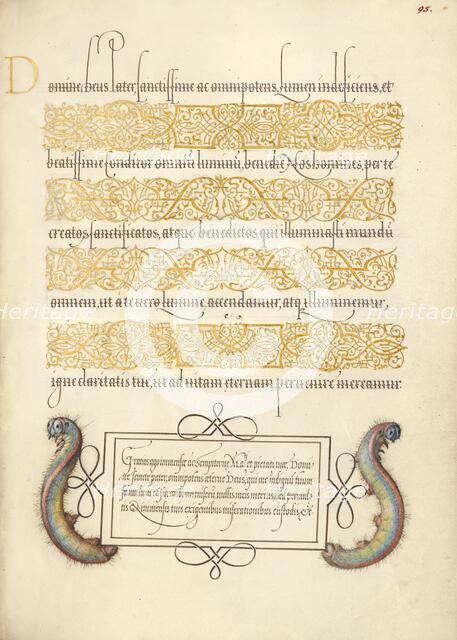 95.
Domine, Deus Pater, sanctissime ac omnipotens, Lumen indeficiens, et
beatissime Conditor omniū luminū, benedic Nos homines, per te
creatos, sanctificatos, atque benedictos, qui illuminasti mundū
omnem, ut a te vero Lumine, accendamur, atq illuminemur,
igne claritatis tue, ut ad vitam eternam pervenire mereamur.
Gratias ago immensae ac sempiternae Ma.ti et pietati tuae, Domi-
ne sancte pater, omnipotens aeterne Deus, qui me indignū tuum
miserū, nullis meis meritis, sed
immensis tuis exigentibus miserationibus custodis. &c
Heritage
Heritage
Heritage